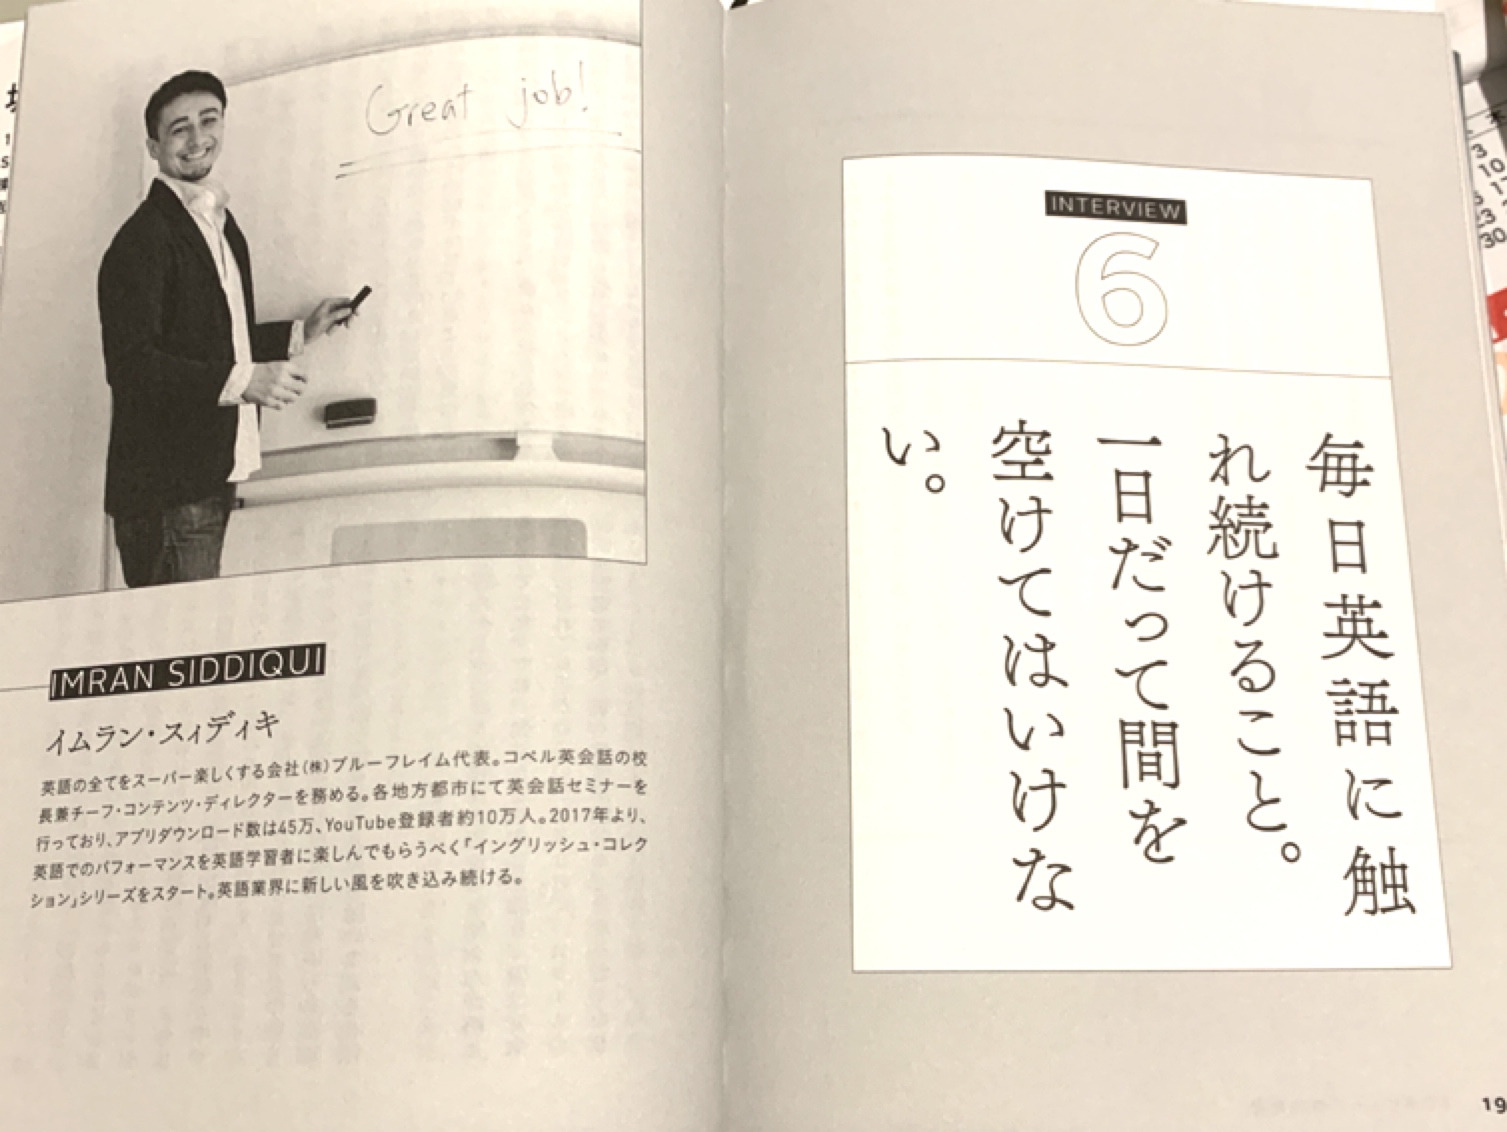 Great job!
IMRAN SIDDIQUI
イムラン・スィディキ
英語の全てをスーパー楽しくする会社(株)ブルーフレイム代表。コペル英会話の校
長兼チーフ・コンテンツ・ディレクターを務める。各地方都市にて英会話セミナーを
行っており、アプリダウンロード数は45万、YouTube登録者約10万人。2017年より、
英語でのパフォーマンスを英語学習者に楽しんでもらうべく「イングリッシュ・コレク
ション」シリーズをスタート。英語業界に新しい風を吹き込み続ける。
INTERVIEW
6
毎日英語に触
れ続けること。
一日だって間を
空けてはいけな
い。